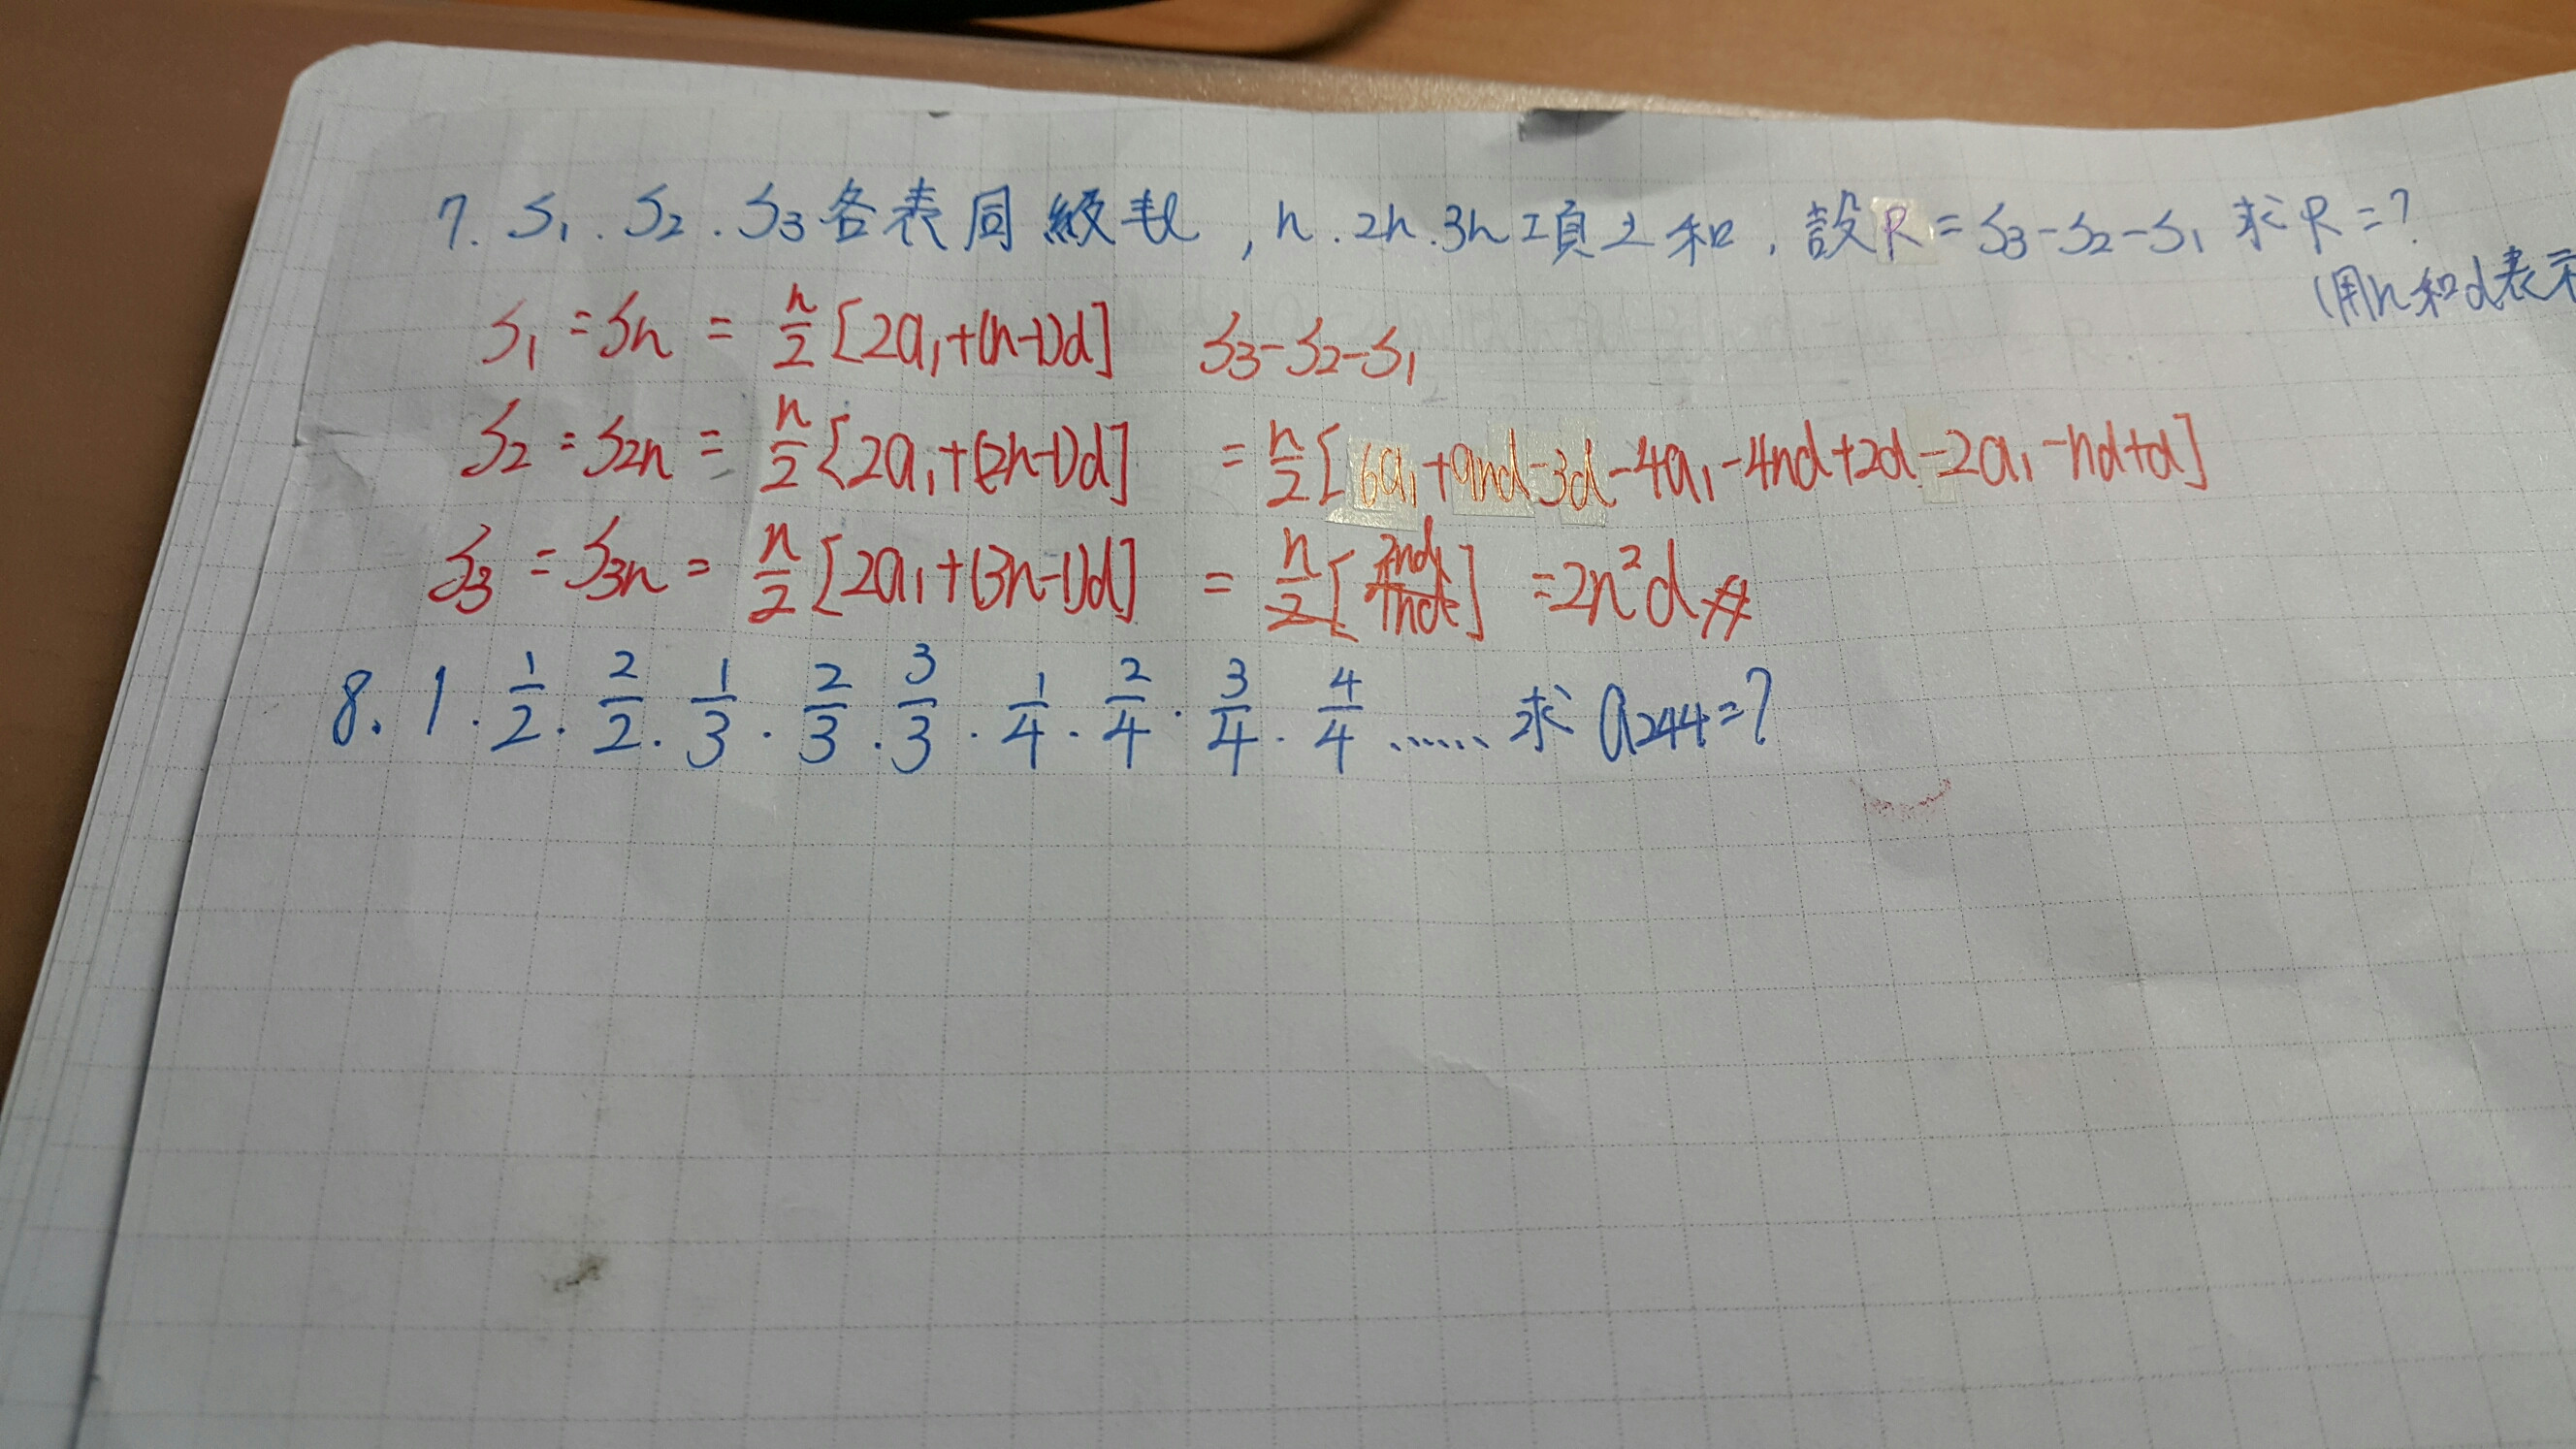 7. S₁. S₂. S₃各表同級數, n. 2n. 3n項之和, 設R = S₃-S₂-S₁ 求R=?
(用n和d表示
S₁ = Sn = n/2 [2a₁+(n-1)d] S₃-S₂-S₁
S₂ = S2n = n/2 [2a₁+(2n-1)d] = n/2 [6a₁+9nd-3d-4a₁-4nd+2d-2a₁-nd+d]
S₃ = S3n = n/2 [2a₁+(3n-1)d] = n/2 [4nd] =2n²d
8. 1. 1/2. 2/2. 1/3. 2/3. 3/3. 1/4. 2/4. 3/4. 4/4 ...... 求 a244=?